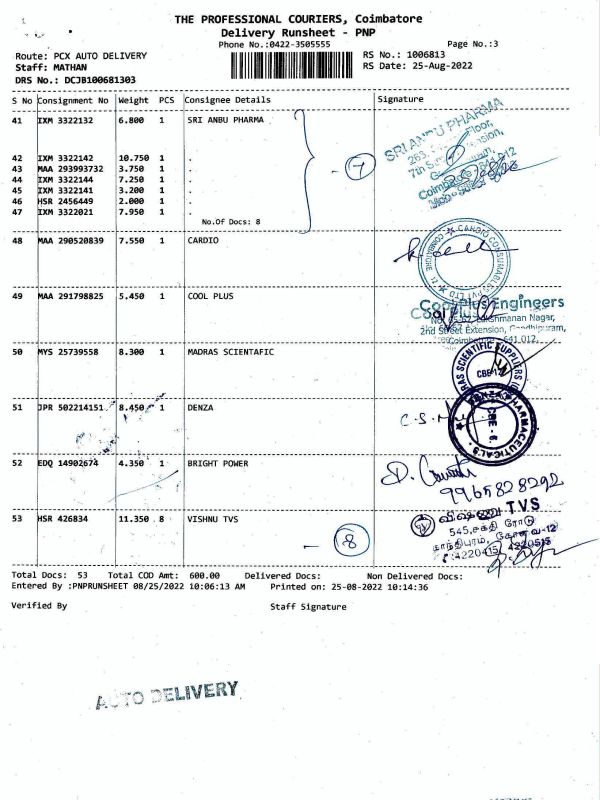 THE PROFESSIONAL COURIERS, Coimbatore
Delivery Runsheet - PNP
Phone No.:0422-3505555
Page No.:3
Route: PCX AUTO DELIVERY
RS No.: 1006813
Staff: MATHAN
RS Date: 25-Aug-2022
DRS No.: DCJB100681303
S No Consignment No Weight PCS Consignee Details Signature
41 IXM 3322132 6.800 1 SRI ANBU PHARMA
SRI ANBU PHARMA
263, Floor,
7th
42 IXM 3322142 10.750 1 .
43 MAA 293993732 3.750 1 .
44 IXM 3322144 7.250 1 .
45 IXM 3322141 3.200 1 .
46 HSR 2456449 2.000 1 .
47 IXM 3322021 7.950 1 .
No.Of Docs: 8
7
48 MAA 290520839 7.550 1 CARDIO
CARDIO CONSUMABLES PVT LTD
COIMBATORE - 12
49 MAA 291798825 5.450 1 COOL PLUS
Cool Plus Engineers
Lakshmanan Nagar,
2nd Street Extension, Gandhipuram,
Coimbatore - 641 012.
50 MYS 25739558 8.300 1 MADRAS SCIENTAFIC
SCIENTIFIC SUPPLIERS
CBE-12
51 JPR 502214151 8.450 1 DENZA
C.S.
DENZA PHARMACEUTICALS
CBE - 6.
52 EDQ 14902674 4.350 1 BRIGHT POWER
D.
9965828292
53 HSR 426834 11.350 8 VISHNU TVS
விஷ்ணு TVS
545,சக்தி ரோடு
காந்திபுரம், கோவை-12
:4220415, 4220515
- 8
Total Docs: 53 Total COD Amt: 600.00 Delivered Docs: Non Delivered Docs:
Entered By :PNPRUNSHEET 08/25/2022 10:06:13 AM Printed on: 25-08-2022 10:14:36
Verified By Staff Signature
AUTO DELIVERY